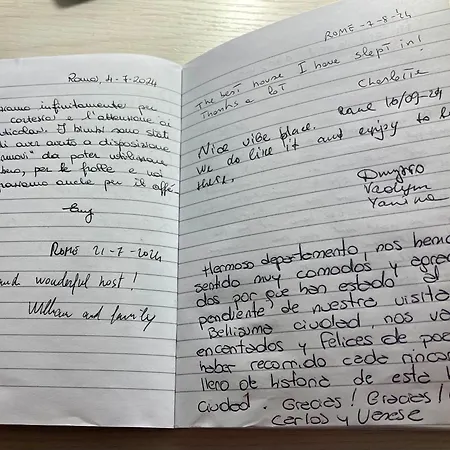 Roma, 4-7-2024
infinitamente per
e l'attenzione ai
I bimbi sono stati
di aver avuto a disposizione
da poter utilizzare
per le frolle e noi
anche per il caffè
ROME 21-7-2024
wonderful host!
William and family
ROME -7-8-24
The best house I have slept in!
Thanks a lot
Charlotte
10/09-24
Nice vibe place.
We do like it and enjoy to be
there.
Dmytro
Vadym
Yanina
Hermoso departamento, nos hemos
sentido muy comodos y agrade
dos por que han estado al
pendiente de nuestra visita
Bellisima ciudad, nos va
encantados y felices de pode
haber recorrido cada rincon
lleno de historia de esta
ciudad. Gracias! Gracias!
Carlos y